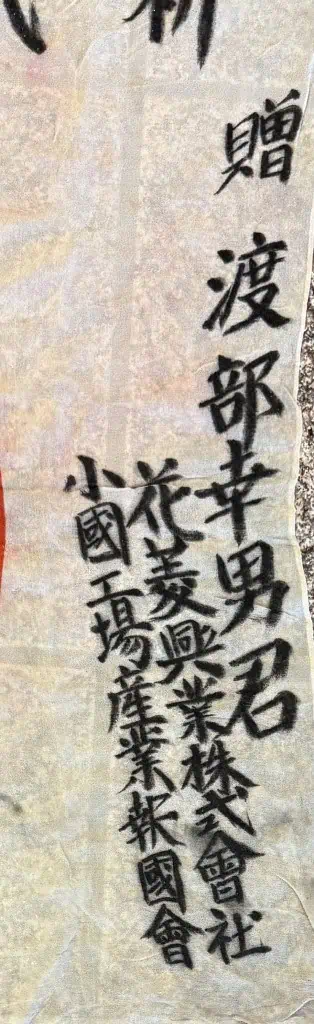 贈 渡部幸男君
花菱興業株式會社
小國工場産業報國會